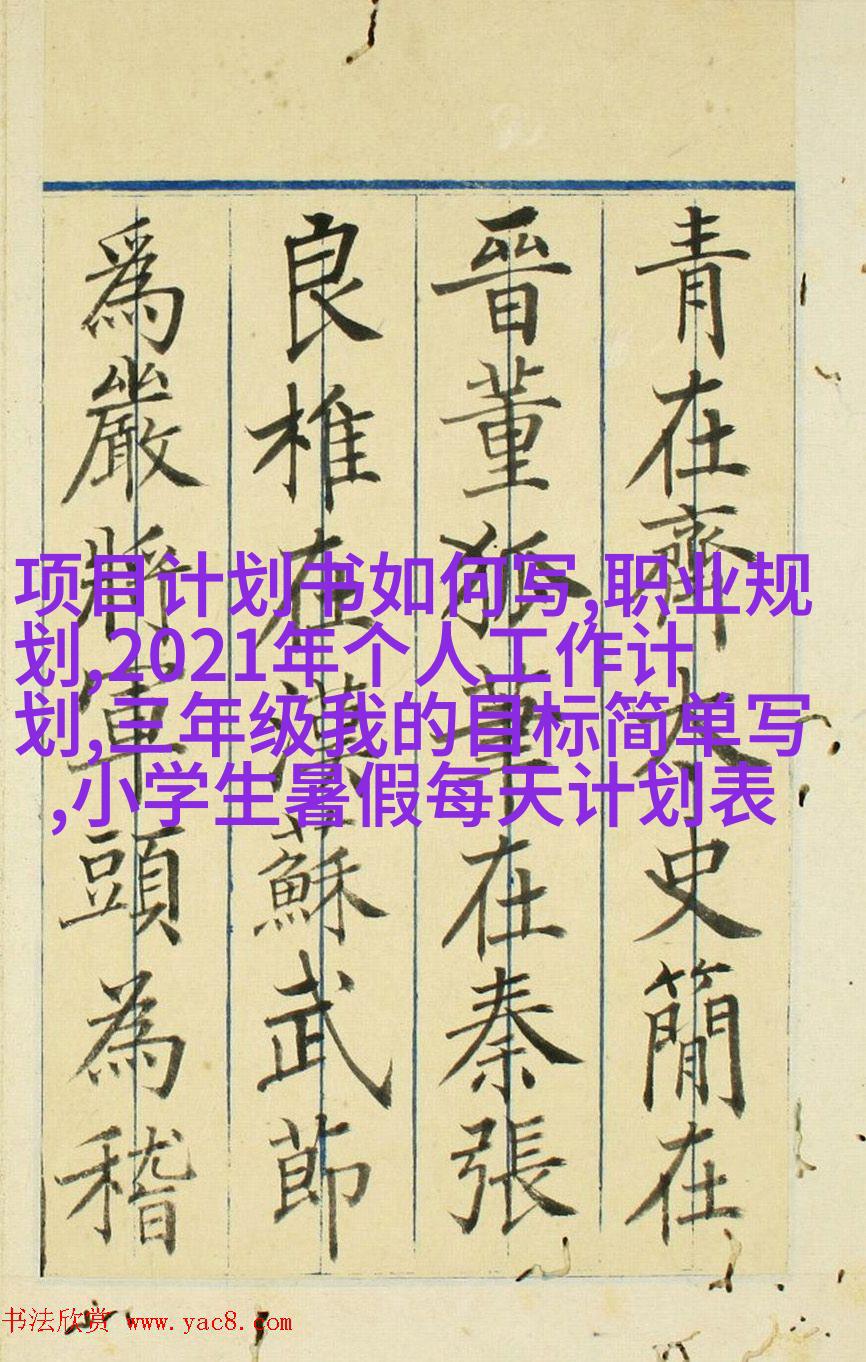 青在齊太史簡在
晉董狐筆在秦張
良椎在漢蘇武節
爲嚴將軍頭為稽
项目计划书如何写,职业规
划,2021年个人工作计
划,三年级我的目标简单写
,小学生暑假每天计划表
书法欣赏 www.yac8.com